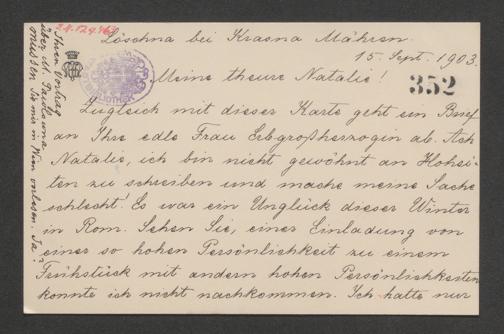 24.129.463
Löschna bei Krasna Mähren.
15. Sept. 1903.
352
Meine theure Natalie!
Zugleich mit dieser Karte geht ein Brief
an Ihre edle Frau Erbgroßherzogin ab. Ach
Natalie, ich bin nicht gewöhnt an Hohei-
ten zu schreiben und mache meine Sache
schlecht. Es war ein Unglück dieser Winter
in Rom. Sehen Sie, einer Einladung von
einer so hohen Persönlichkeit zu einem
Frühstück mit andern hohen Persönlichkeiten
konnte ich nicht nachkommen. Ich hatte nur
Ihren Vortrag
über M. Paulowna
müssen Sie mir in Wien vorlesen. Ja?